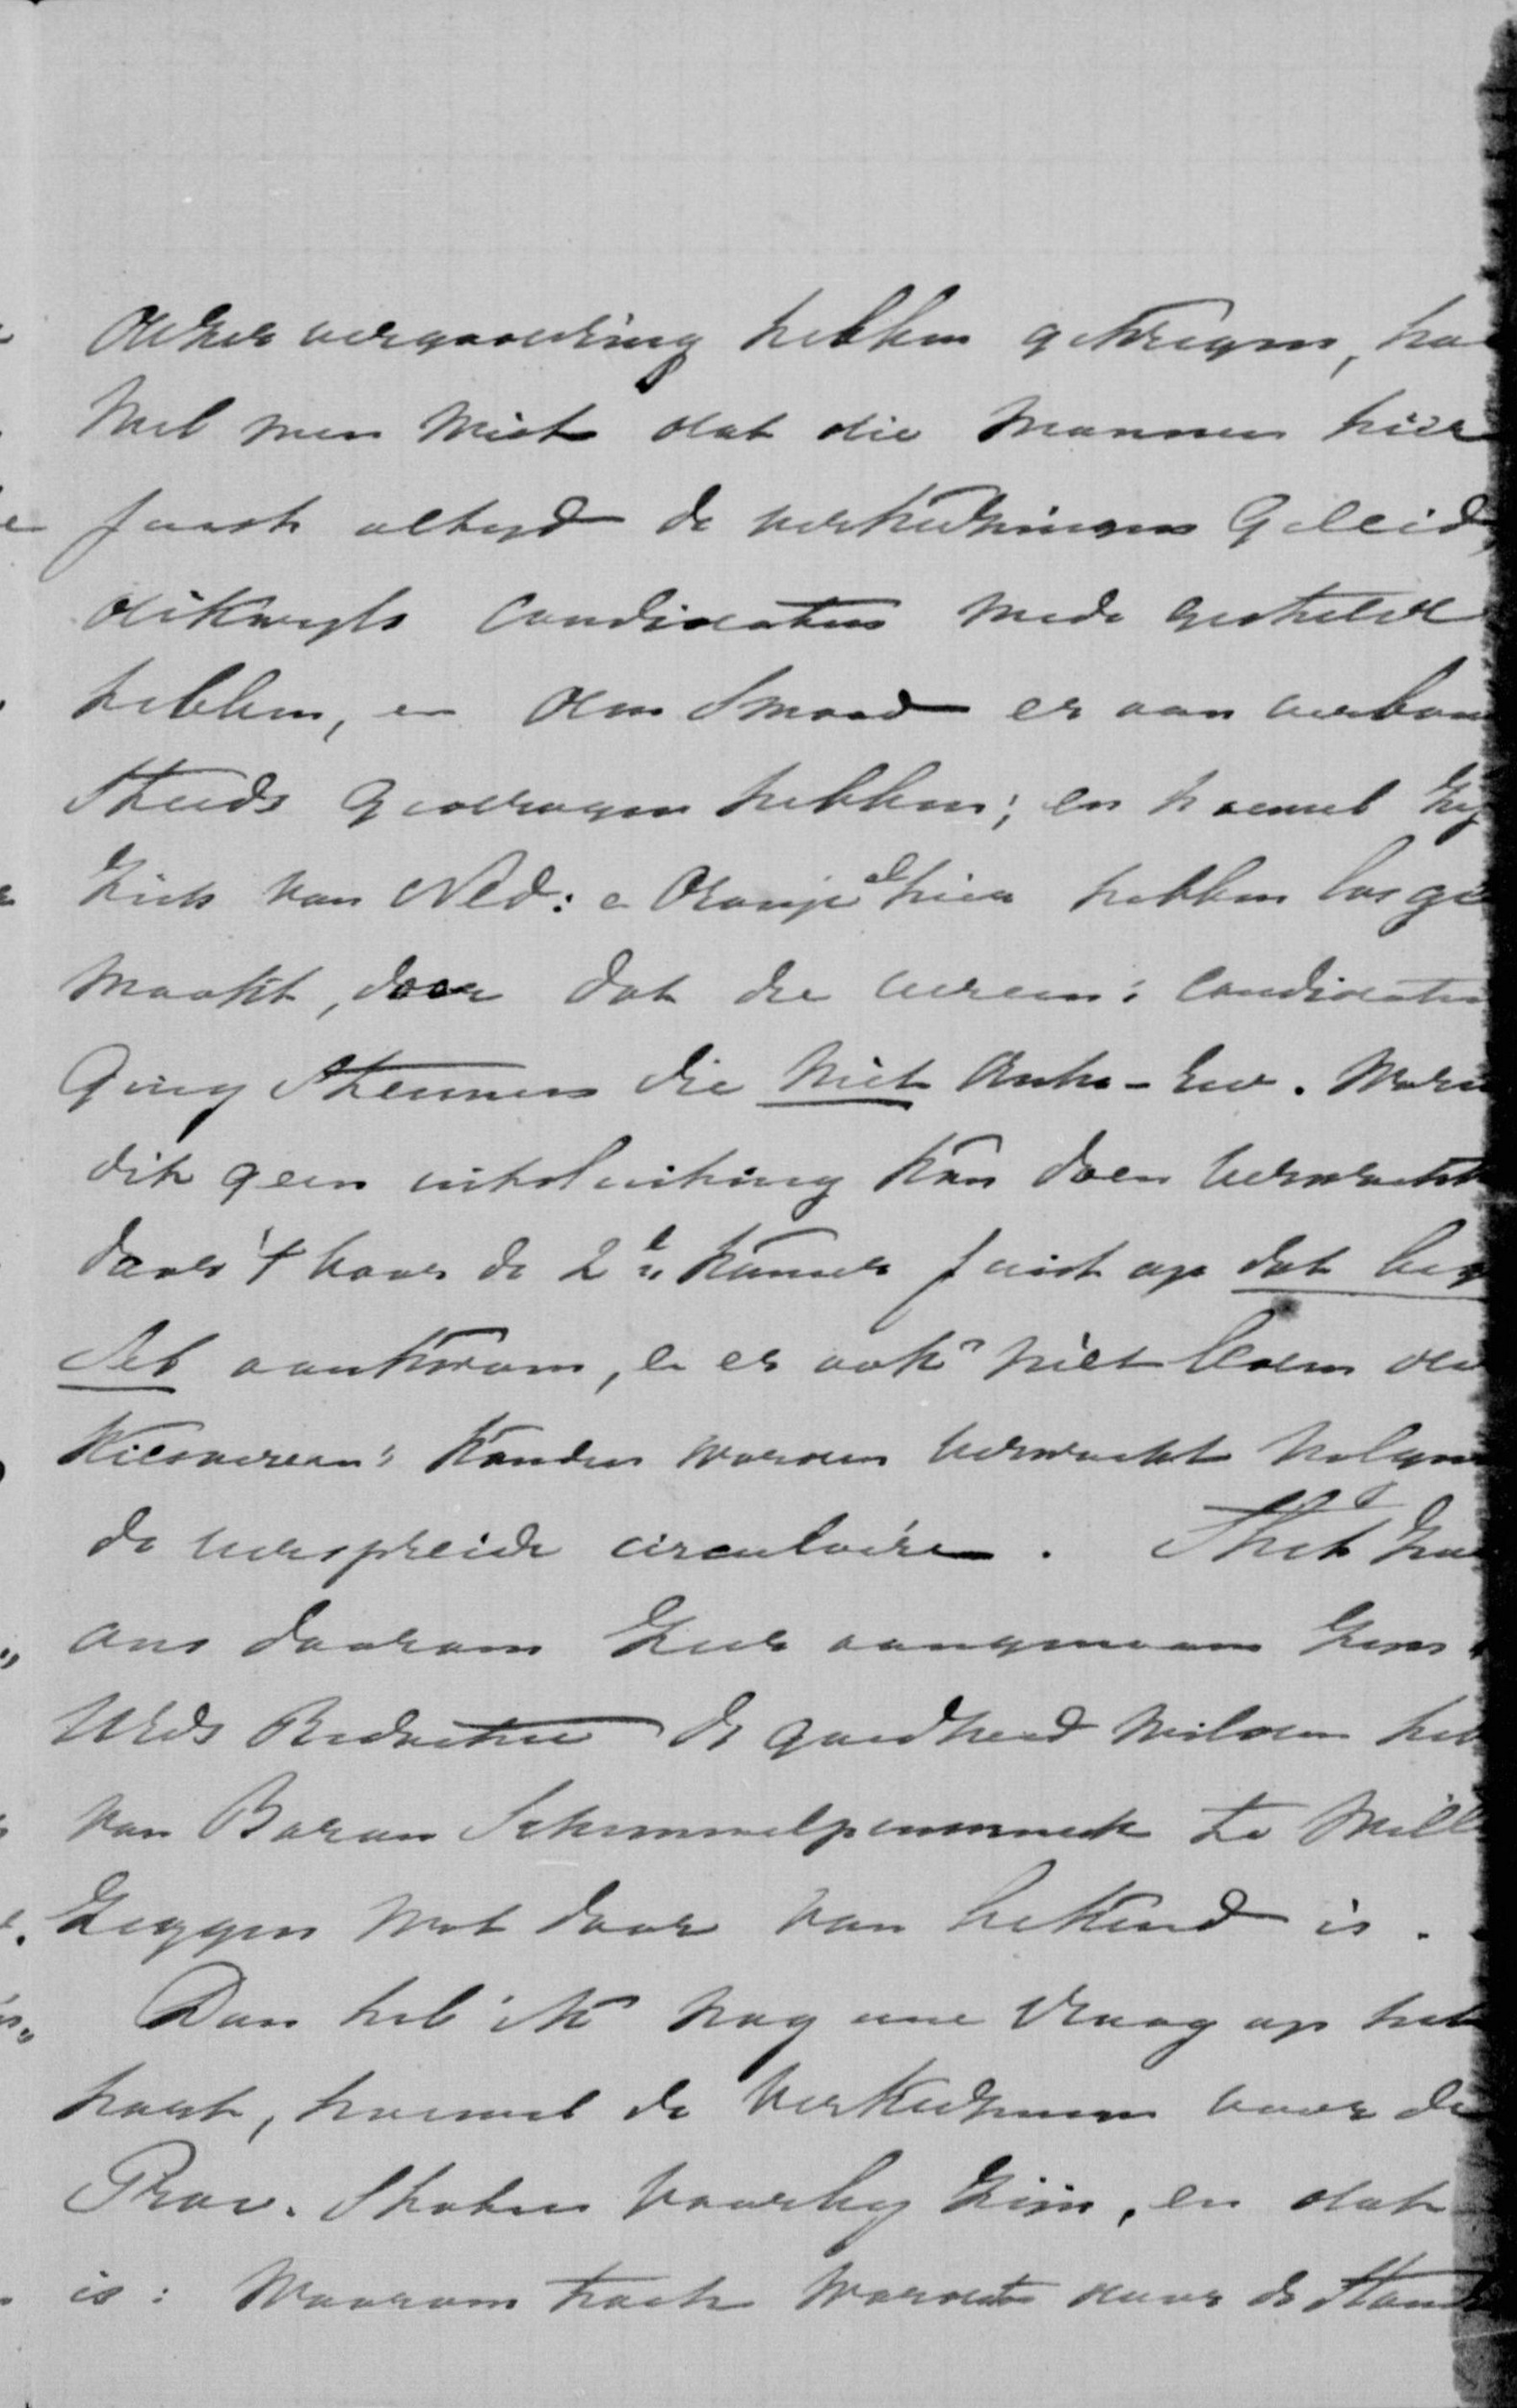 dezer vergadering hebben gekregen, ho
wel men wist dat die mannen hier
juist altyd de verkiezingen geleid,
dikwyls candidaten mede gesteld
hebben, en den smaad er aan verbon
steeds gedragen hebben; en hoewel zy
zich van Ned: e Oranje alhier hebben losge
maakt, door dat die vereen: candidaten
ging steunen die niet Anti-rev. waren
dit geen uitsluiting kan doen verwachten
daar 't voor de 2e Kamer juist op dat beg
sel aankwam, e er ook niet leden der
Kiesvereen: konden worden verwacht volgens
de verspreide circulaire. 't
ons daarom zeer aangenaam zyn
UEds Redactie de goedheid wilden heb
van Baron Schimmelpenninck te will
zeggen wat daar van bekend is.
Dan heb ik nog eene vraag op het
hart, hoewel de verkiezingen voor de
Prov. Staten voorby zijn, en dat
is: Waarom toch worden door de Stand